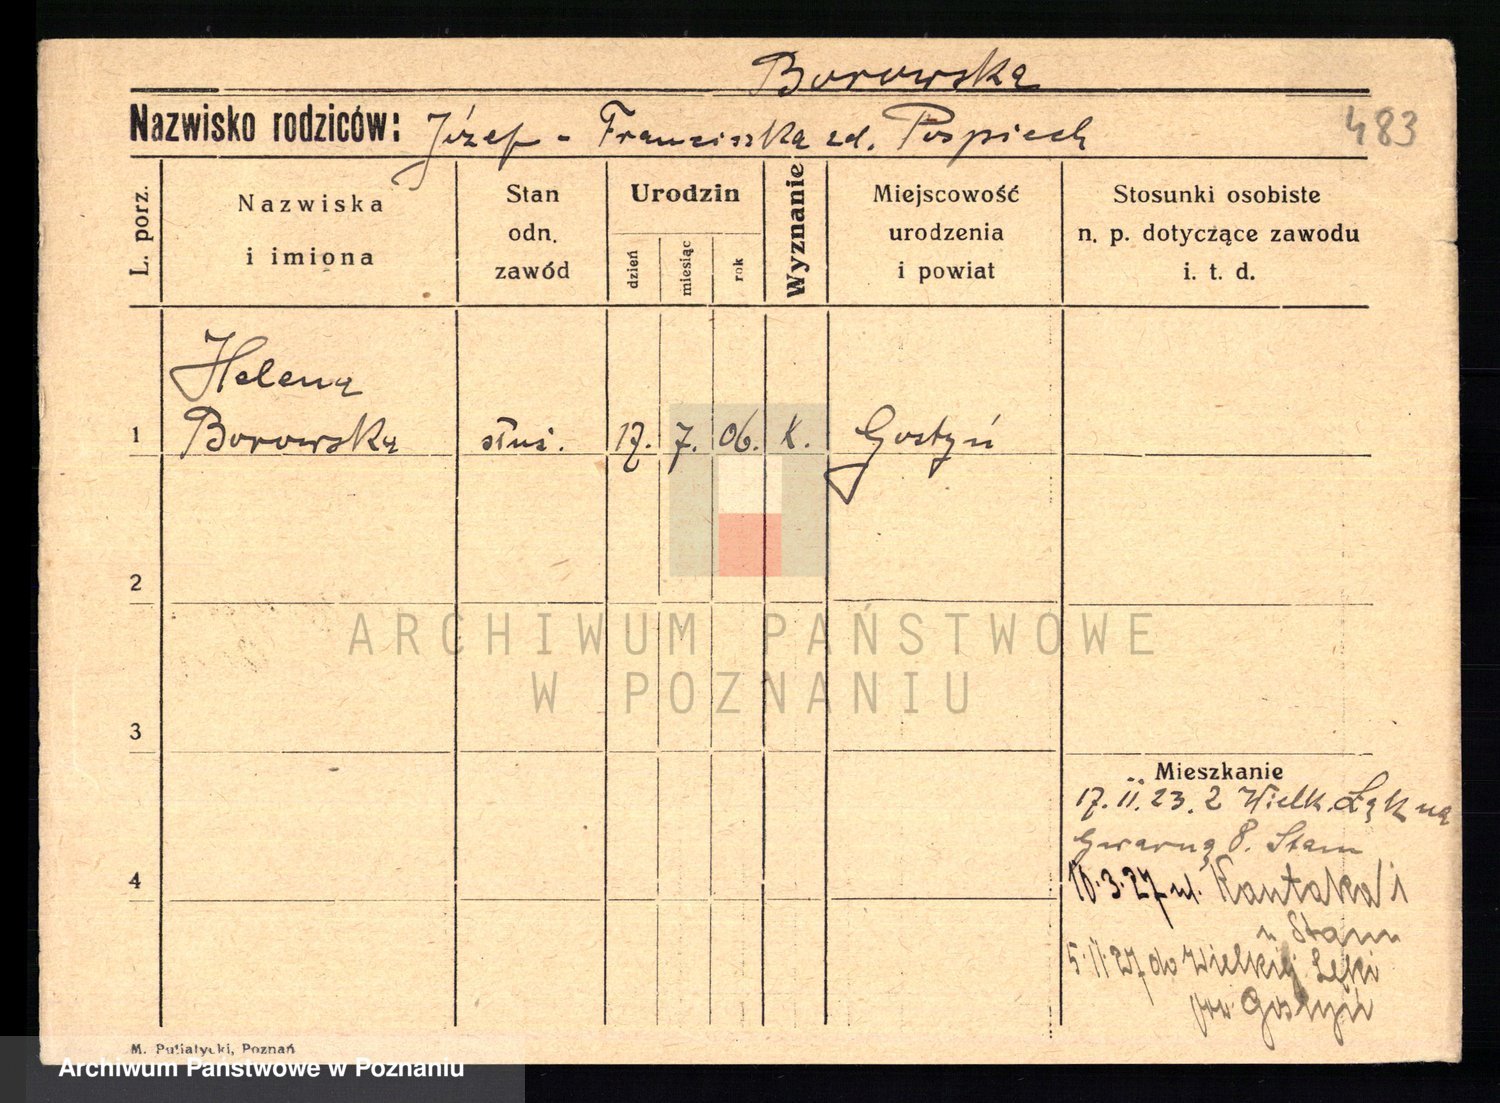 Borowska
Nazwisko rodziców: Józef - Franciszka zd. Pospiech
483
L. porz.
Nazwiska
i imiona
Stan
odn.
zawód
Urodzin
dzień
miesiąc
rok
Wyznanie
Miejscowość
urodzenia
i powiat
Stosunki osobiste
n. p. dotyczące zawodu
i. t. d.
Helena
1 Borowska służ. 17. 7. 06. K. Gostyń
2
ARCHIWUM PAŃSTWOWE
W POZNANIU
3
Mieszkanie
17. II. 23. z Wielk. Łąk na
Gwarną 8. Stam
4
10.3.27 ul. Kantaka 1
u Stam
5.11.27 do Wielkiej Łęki
pow Gostyń
M. Putiatycki, Poznań
Archiwum Państwowe w Poznaniu